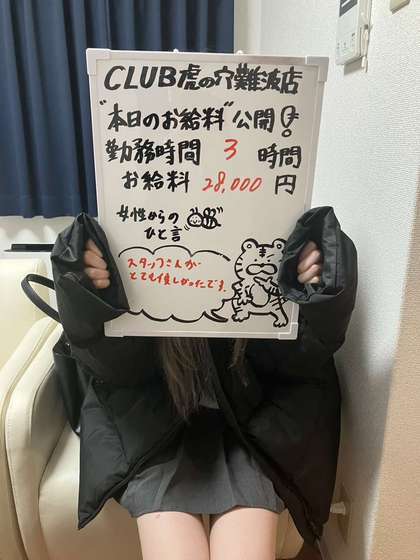 CLUB虎の穴難波店
"本日のお給料"公開!
勤務時間 3 時間
お給料 28,000 円
女性からの
ひと言
スタッフさんが
とても優しかったです。